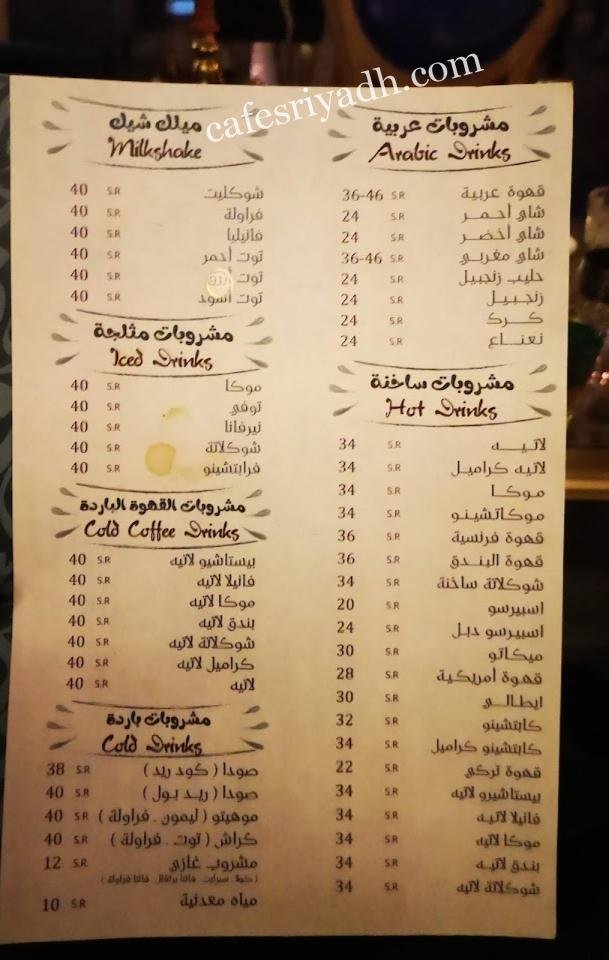 cafesriyadh.com
مشروبات عربية
Arabic Drinks
قهوة عربية S.R 36-46
شاي أحمر S.R 24
شاي أخضر S.R 24
شاي مغربي S.R 36-46
حليب زنجبيل S.R 24
زنجبيل S.R 24
كرك S.R 24
نعناع S.R 24
مشروبات ساخنة
Hot Drinks
لاتيه S.R 34
لاتيه كراميل S.R 34
موكا S.R 34
موكاتشينو S.R 34
قهوة فرنسية S.R 36
قهوة البندق S.R 36
شوكلاتة ساخنة S.R 34
اسبيرسو S.R 20
اسبيرسو دبل S.R 24
ميكاتو S.R 30
قهوة أمريكية S.R 28
ايطالي S.R 30
كابتشينو S.R 32
كابتشينو كراميل S.R 34
قهوة تركي S.R 22
بيستاشيرو لاتيه S.R 34
فانيلا لاتيه S.R 34
موكا لاتيه S.R 34
بندق لاتيه S.R 34
شوكلاتة لاتيه S.R 34
ميلك شيك
Milkshake
شوكليت S.R 40
فراولة S.R 40
فانيليا S.R 40
توت أحمر S.R 40
توت S.R 40
توت أسود S.R 40
مشروبات مثلجة
Iced Drinks
موكا S.R 40
توفي S.R 40
نيرفانا S.R 40
شوكلاتة S.R 40
فرابتشينو S.R 40
مشروبات القهوة الباردة
Cold Coffee Drinks
بيستاشيو لاتيه S.R 40
فانيلا لاتيه S.R 40
موكا لاتيه S.R 40
بندق لاتيه S.R 40
شوكلاتة لاتيه S.R 40
كراميل لاتيه S.R 40
لاتيه S.R 40
مشروبات باردة
Cold Drinks
صودا ( كود ريد ) S.R 38
صودا ( ريد بول ) S.R 40
موهيتو ( ليمون - فراولة ) S.R 40
كراش ( توت - فراولة ) S.R 40
مشروب غازي S.R 12
( كولا - سبرايت - فانتا برتقال - فانتا فراولة )
مياه معدنية S.R 10